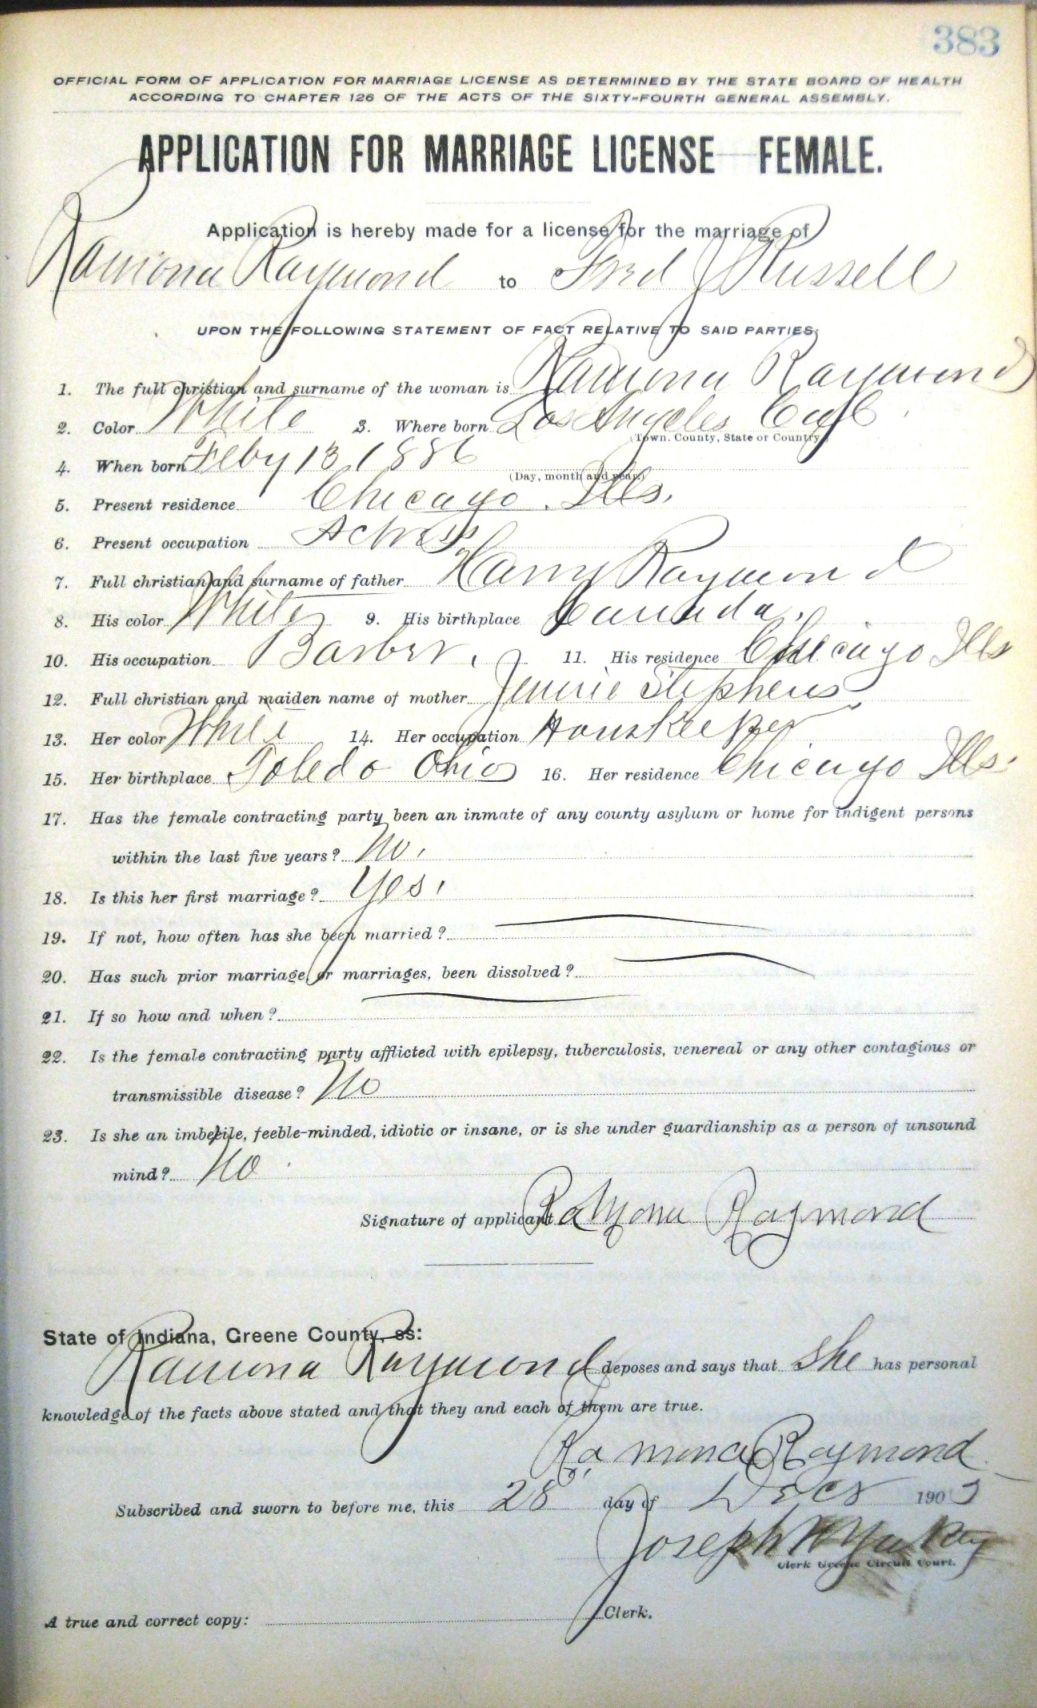 383
OFFICIAL FORM OF APPLICATION FOR MARRIAGE LICENSE AS DETERMINED BY THE STATE BOARD OF HEALTH
ACCORDING TO CHAPTER 126 OF THE ACTS OF THE SIXTY-FOURTH GENERAL ASSEMBLY.
APPLICATION FOR MARRIAGE LICENSE FEMALE.
Application is hereby made for a license for the marriage of
Ramona Raymond to Fred J Russell
UPON THE FOLLOWING STATEMENT OF FACT RELATIVE TO SAID PARTIES:
1. The full christian and surname of the woman is Ramona Raymond
2. Color White 3. Where born Los Angeles Calf
(Town, County, State or Country)
4. When born Feby 13, 1886
(Day, month and year)
5. Present residence Chicago. Ills.
6. Present occupation Actress
7. Full christian and surname of father Harry Raymond
8. His color White 9. His birthplace Canada.
10. His occupation Barber. 11. His residence Chicago Ills
12. Full christian and maiden name of mother Jennie Stephens
13. Her color White 14. Her occupation HousKeeper
15. Her birthplace Toledo Ohio 16. Her residence Chicago Ills.
17. Has the female contracting party been an inmate of any county asylum or home for indigent persons
within the last five years? No.
18. Is this her first marriage? Yes.
19. If not, how often has she been married?
20. Has such prior marriage, or marriages, been dissolved?
21. If so how and when?
22. Is the female contracting party afflicted with epilepsy, tuberculosis, venereal or any other contagious or
transmissible disease? No
23. Is she an imbecile, feeble-minded, idiotic or insane, or is she under guardianship as a person of unsound
mind? No
Signature of applicant Ramona Raymond
State of Indiana, Greene County, ss:
Ramona Raymond deposes and says that she has personal
knowledge of the facts above stated and that they and each of them are true.
Ramona Raymond
Subscribed and sworn to before me, this 28 day of Decr 190
Joseph
Clerk Greene Circuit Court.
A true and correct copy: Clerk.